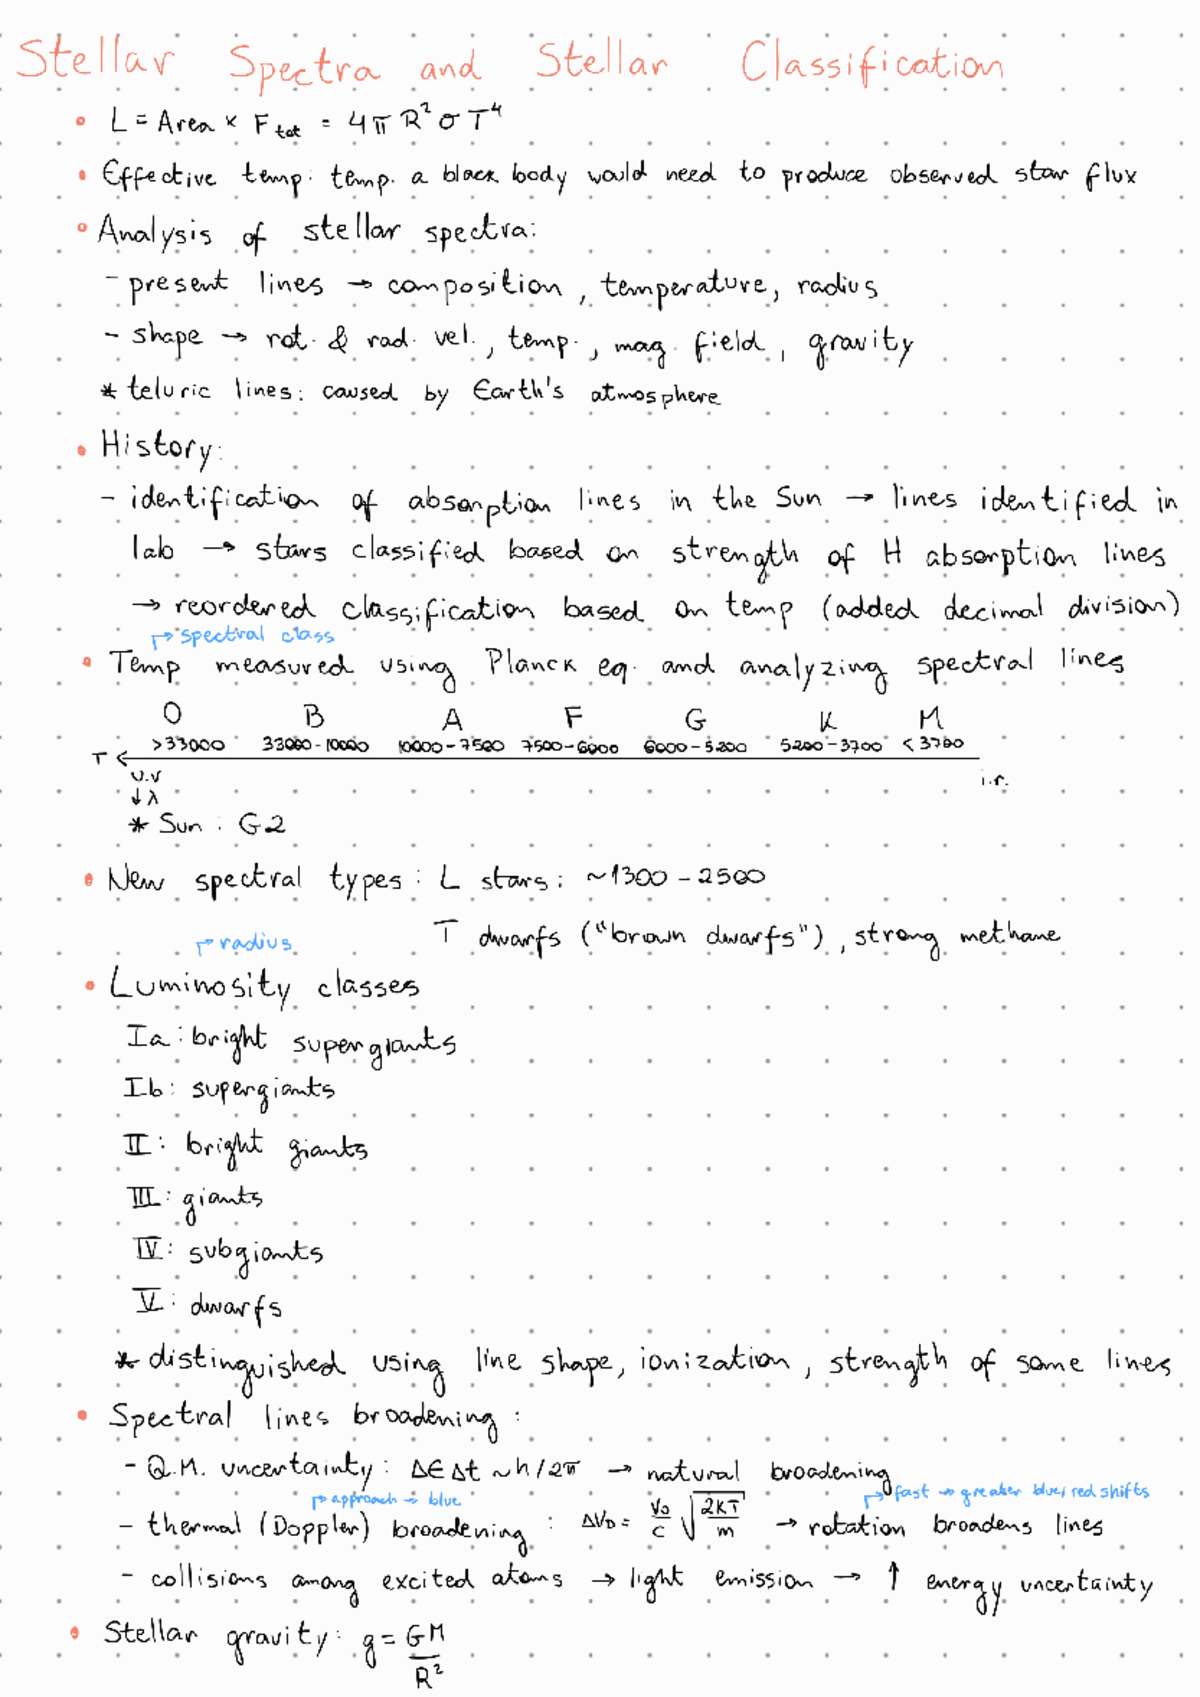 Stellar Spectra and Stellar Classification
• L = Area × F tot = 4πR²σT⁴
• Effective temp: temp. a black body would need to produce observed star flux
• Analysis of stellar spectra:
- present lines → composition, temperature, radius
- shape → rot. & rad. vel., temp., mag. field, gravity
* teluric lines: caused by Earth's atmosphere
• History:
- identification of absorption lines in the Sun → lines identified in
lab → stars classified based on strength of H absorption lines
→ reordered classification based on temp (added decimal division)
↱ spectral class
• Temp measured using Planck eq. and analyzing spectral lines
O B A F G K M
>33000 33000-10000 10000-7500 7500-6000 6000-5200 5200-3700 <3700
T ←
u.v i.r.
↓λ
* Sun: G2
• New spectral types: L stars: ~1300-2500
T dwarfs ("brown dwarfs"), strong methane
↱ radius
• Luminosity classes
Ia: bright supergiants
Ib: supergiants
II: bright giants
III: giants
IV: subgiants
V: dwarfs
* distinguished using line shape, ionization, strength of some lines
• Spectral lines broadening:
- Q.M. uncertainty: ΔEΔt ~ h/2π → natural broadening
↱ approach → blue ↱ fast → greater blue/red shifts
- thermal (Doppler) broadening: ΔVD = V0/c √(2KT/m) → rotation broadens lines
- collisions among excited atoms → light emission → ↑ energy uncertainty
• Stellar gravity: g = GM/R²